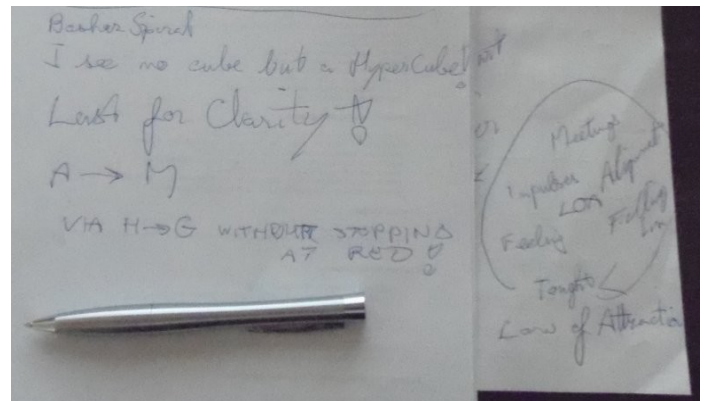 I see no cube but a HyperCube!
Lust for Clarity!
A → M
VIA H→G WITHOUT STOPPING
AT RED!
Meetings
Impulses Alignment
LOA
Feeling Falling
in
Tought
Law of Attraction